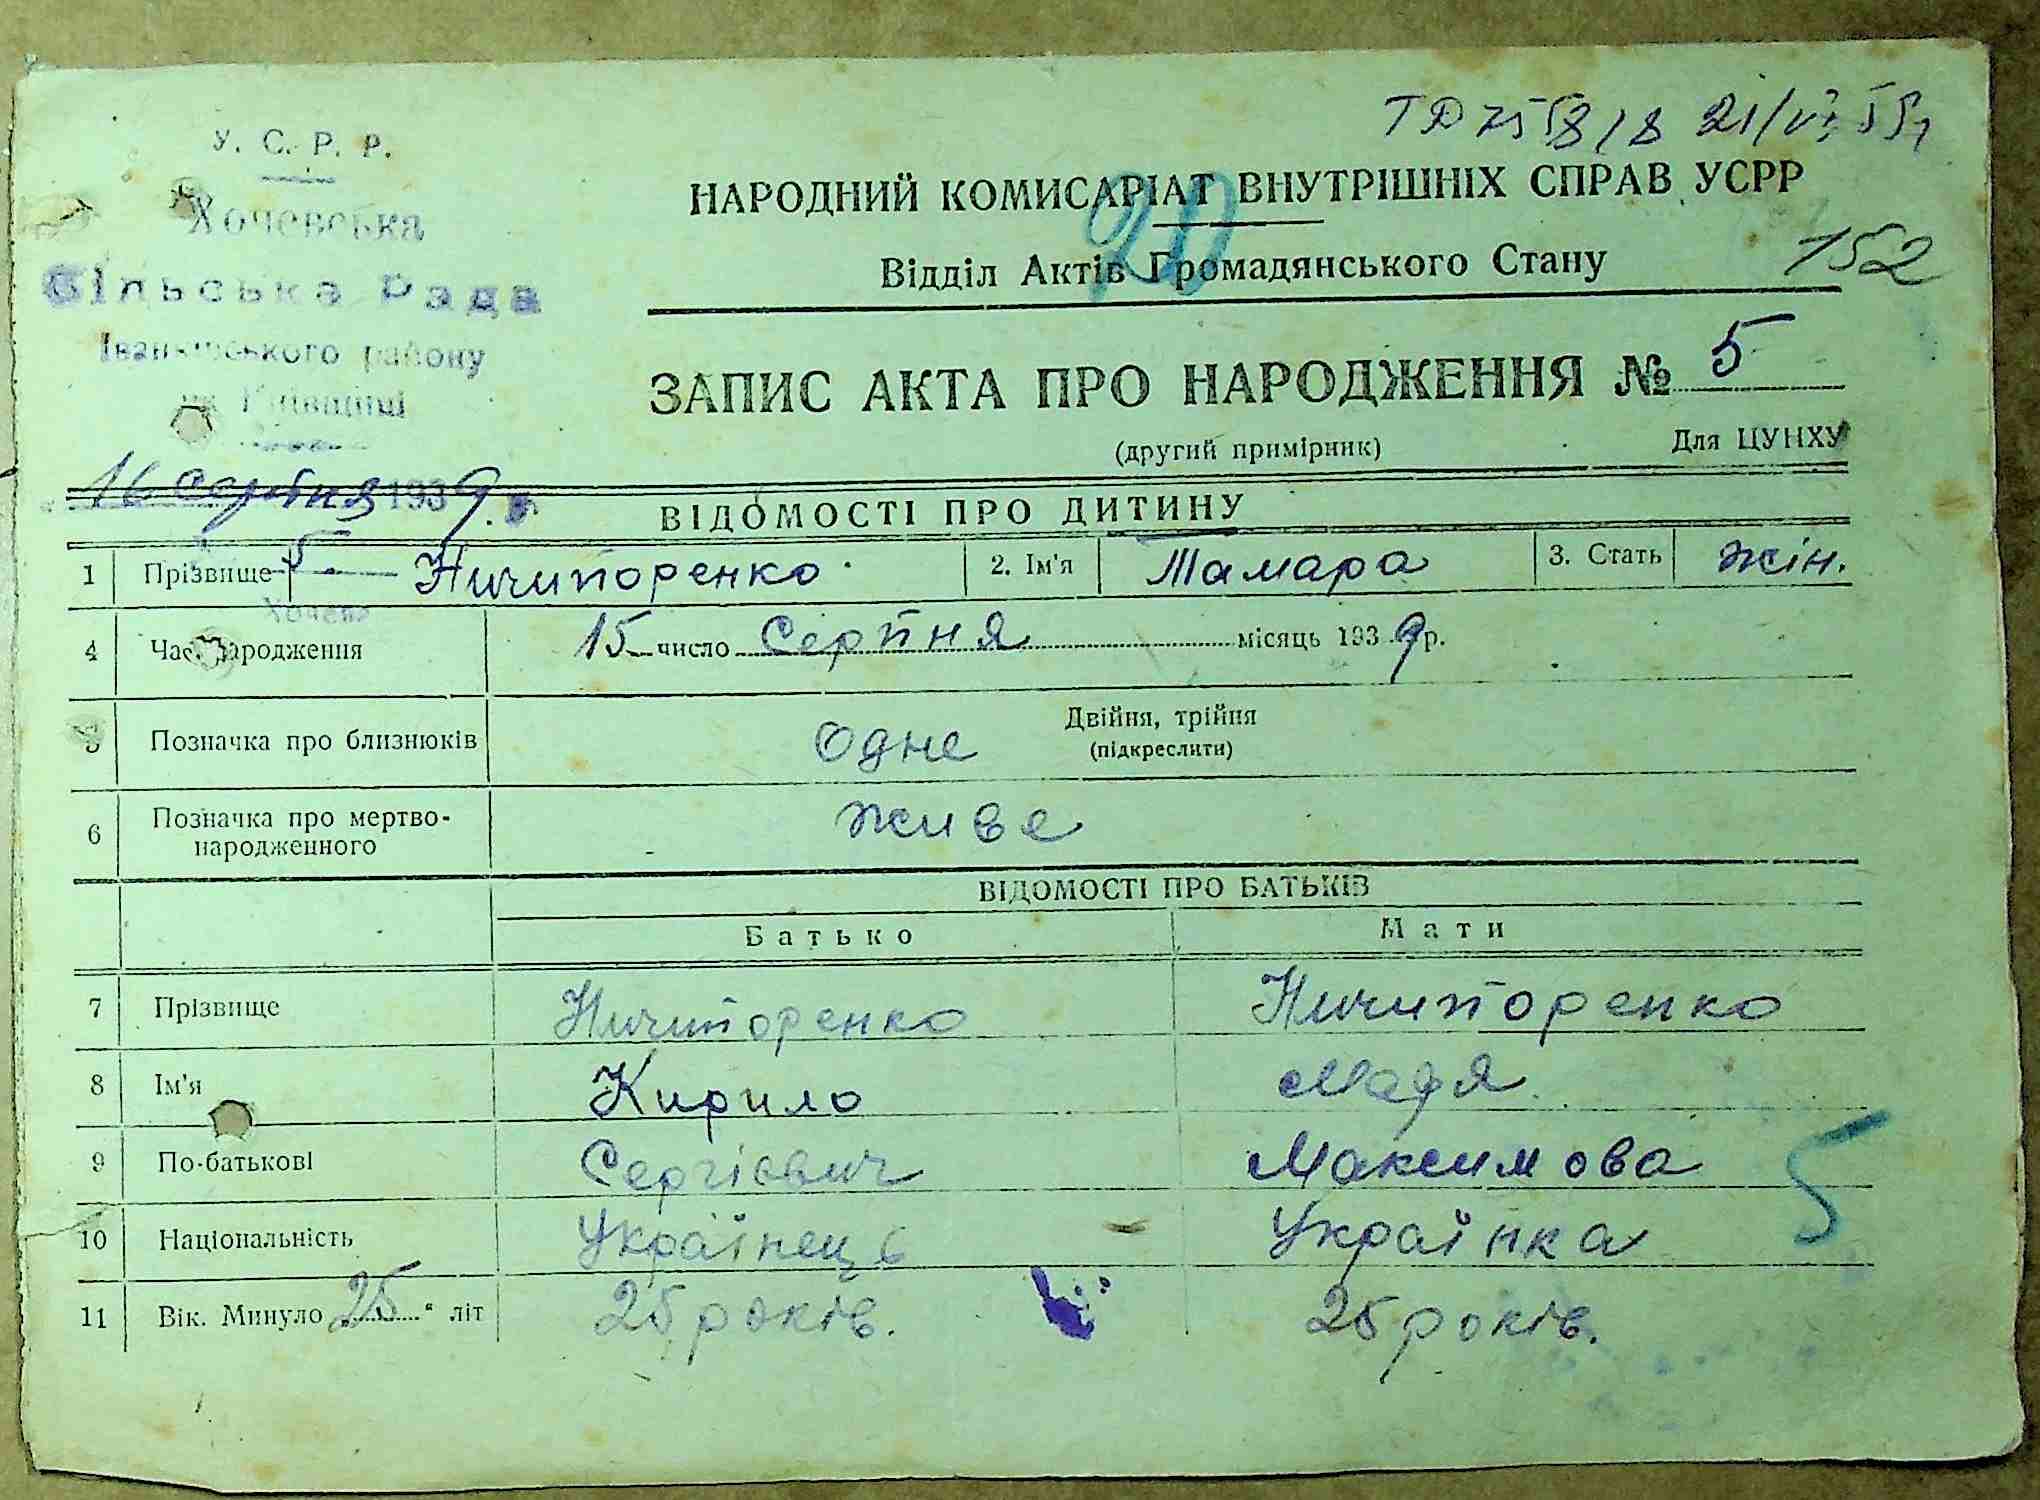 У. С. Р. Р.
Хочевська
Сільська Рада
Іванківського району
на Київщині
16 серпня 1939 р.
5
Хочева
21/VI 55
НАРОДНИЙ КОМИСАРІАТ ВНУТРІШНІХ СПРАВ УСРР
20
Відділ Актів Громадянського Стану
152
ЗАПИС АКТА ПРО НАРОДЖЕННЯ № 5
(другий примірник) Для ЦУНХУ
ВІДОМОСТІ ПРО ДИТИНУ
1 Прізвище Ничипоренко 2. Ім'я Тамара 3. Стать жін.
4 Час народження 15 число Серпня місяць 1939 р.
5 Позначка про близнюків Одне Двійня, трійня
(підкреслити)
6 Позначка про мертво-
народженного живе
ВІДОМОСТІ ПРО БАТЬКІВ
Батько Мати
7 Прізвище Ничипоренко Ничипоренко
8 Ім'я Кирило
9 По-батькові Сергієвич Максимова
5
10 Національність Українець Українка
11 Вік. Минуло 25 " літ 25 років. 25 років.